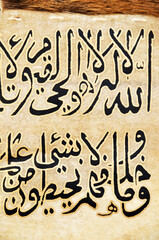 الله لا اله الا هو الحي القيوم لا
وما خلفهم ولا يحيطون بشئ من